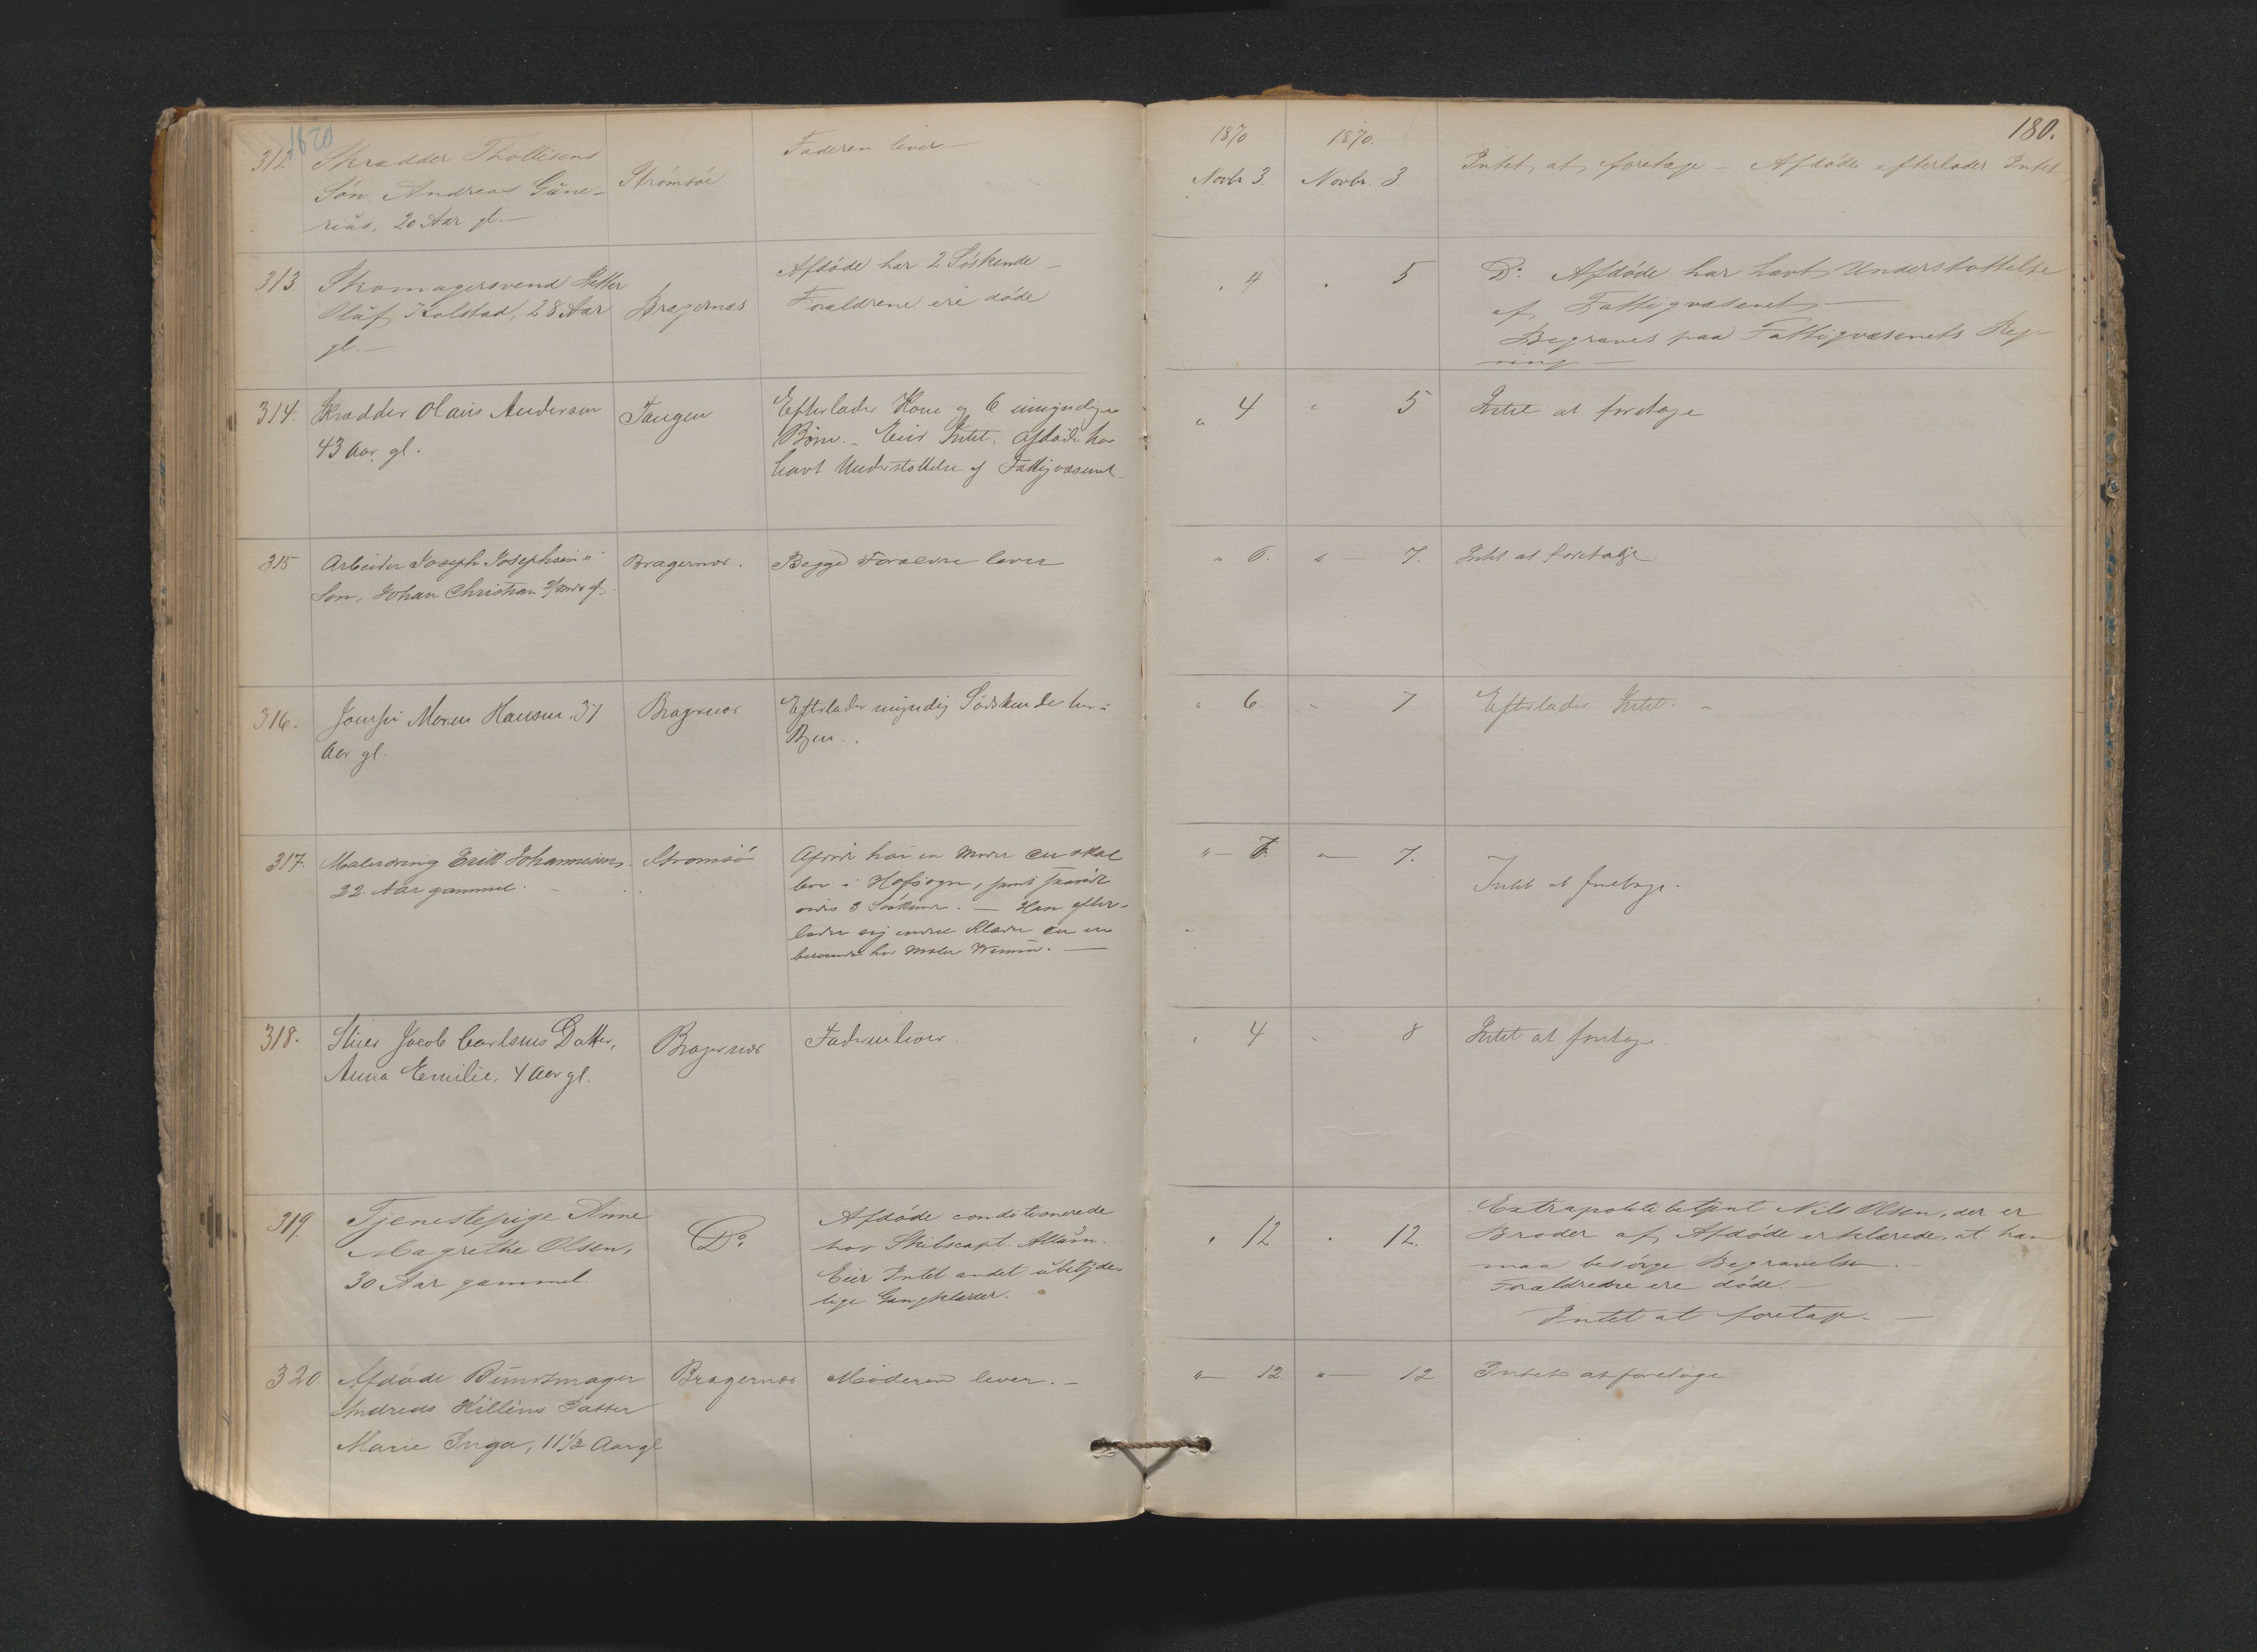 1870
180.
312 Skrædder Thollisens
Sön, Andreas Güne-
riüs, 20 Aar gl. —
Strömsöe
Faderen lever —
1870
Novbr 3.
1870.
Novbr. 3
Intet at foretage — Afdöde efterlader Intet
313 Skomagersvend Petter
Olüf Kolstad, 28 Aar
gl. —
Bragernæs
Afdöde har 2 Söskende —
Forældrene ere döde
" 4 " 5
Do. Afdöde har havt Understøttelse
af Fattigvæsenet, —
Begraves paa Fattigvæsenets Reg-
ning —
314. Skrædder Olaus Andersen
43 Aar gl.
Tangen
Efterlader Kone og 6 umyndige
Börn. — Eier Intet. Afdöde har
havt Understøttelse af Fattigvæsenet.
" 4 " 5
Intet at foretage
315 Arbeider Joseph Josephsens
Søn, Johan Christian gl.
Bragernæs.
Begge Forældre lever
" 6. " — 7.
Intet at foretage.
316. Jomfru Maren Hansen. 37
Aar gl.
Bragernæs
Efterlader myndig Södskende her i
Byen.
" 6. " 7.
Efterlader Intet. —
317. Malerdreng Erik Johannesen,
22 Aar gammel. —
Strömsö
Afdöde har en Moder der skal
bor i Hofsogn, samt
3 Söskende. — Han efter-
lader sig endel Klæder der ere
beroende hos Maler
"— 7. "— 7.
Intet at foretage.
318. Stuer Jacob Carlsens Datter,
Anna Emilie, 4 Aar gl.
Bragernæs
Faderen lever.
" 4 " 8
Intet at foretage.
319. Tjenestepige Anne
Magrethe Olsen,
30 Aar gammel.
Do.
Afdöde conditionerede
hos Skibscapt.
Eier Intet andet übetyde-
lige Gangklæder.
" 12 " 12.
Extrapolitibetjent Nils Olsen, der er
Broder af Afdöde erklærede, at han
maa besörge Begravelsen. —
Forældrene ere döde. —
Intet at foretage. —
320 Afdöde Bündtmager
Andreas Killéns Datter
Marie Inga, 11½ Aar gl
Bragernæs
Moderen lever. —
"— 12. "— 12
Intet at foretage